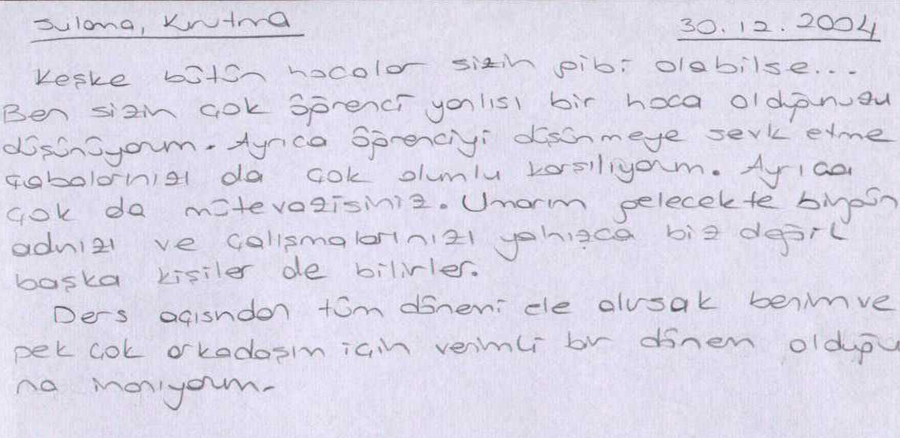 Sulama, Kurutma 30.12.2004
Keşke bütün hocalar sizin gibi olabilse...
Ben sizin çok öğrenci yanlısı bir hoca olduğunuzu
düşünüyorum. Ayrıca öğrenciyi düşünmeye sevk etme
çabalarınızı da çok olumlu karşılıyorum. Ayrıca
çok da mütevazisiniz. Umarım gelecekte birgün
adınızı ve çalışmalarınızı yalnızca biz değil
başka kişiler de bilirler.
Ders açısından tüm dönemi ele alırsak benim ve
pek çok arkadaşım için verimli bir dönem olduğu
na inanıyorum.